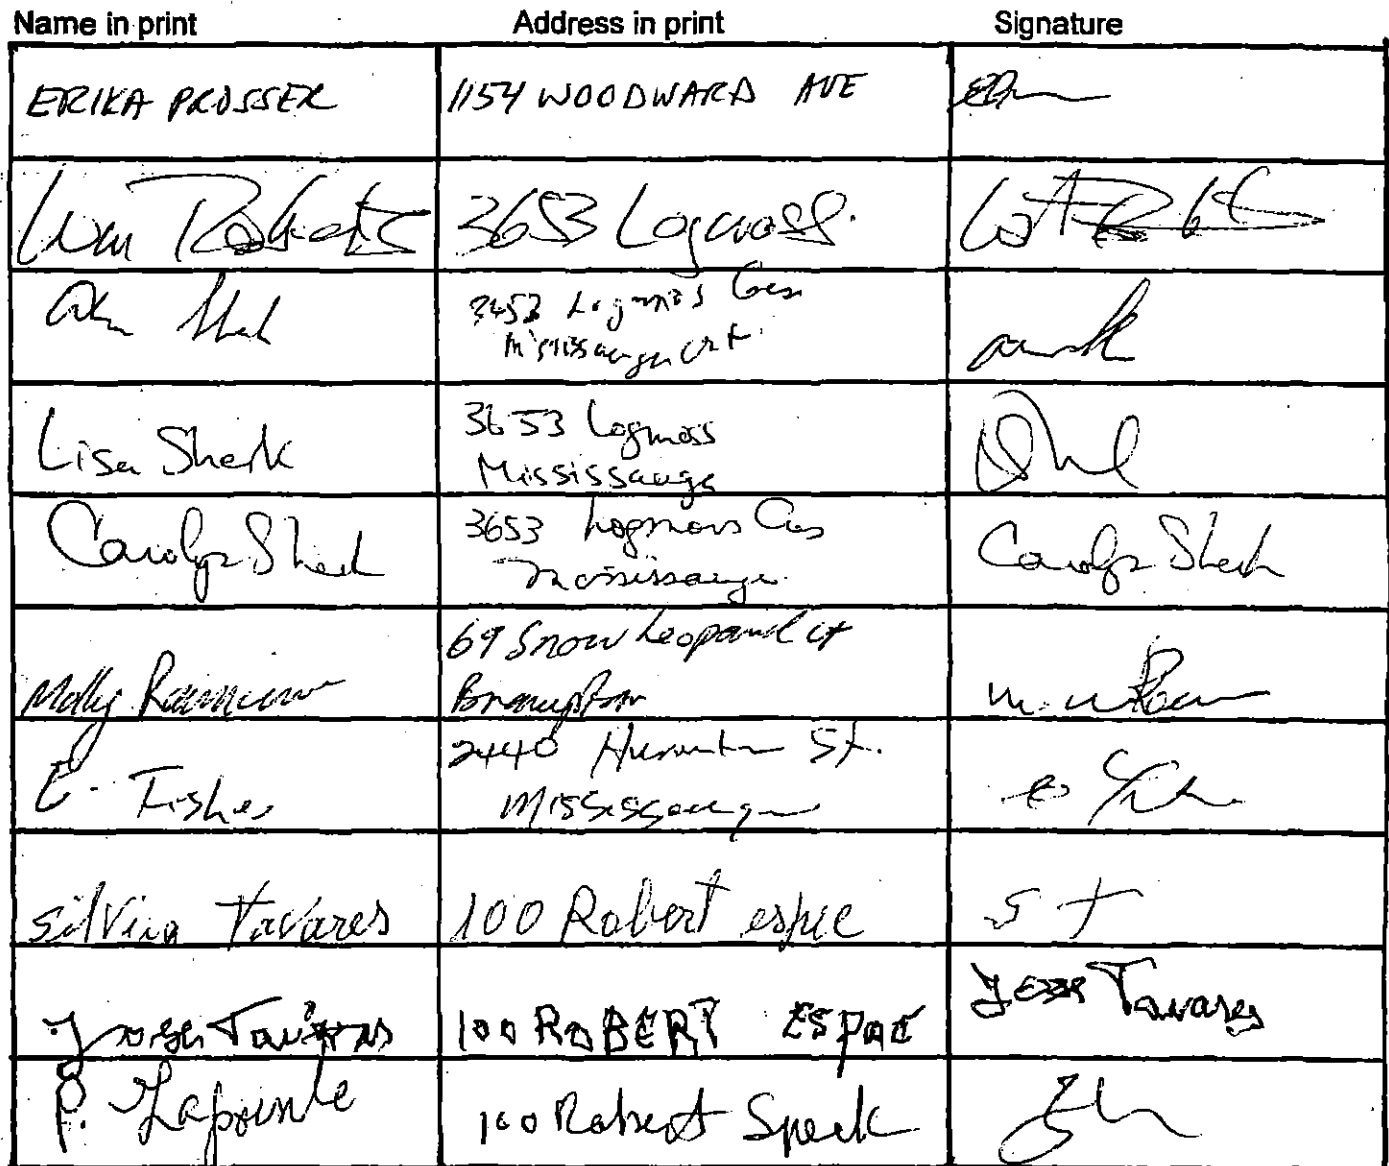 Name in print Address in print Signature
ERIKA PROSSER 1154 WOODWARD AVE
Wm Roberts 3653 Logmoss.
3653
Mississauga Ont.
Lisa Sherk 3653 Logmoss
Mississauga
Carolyn Sherk 3653 Logmoss Cres Carolyn Sherk
Mississauga.
69 Snow Leopard ct
Molly Brampton
2440 St.
E. Fisher Mississauga
silvina Tavares 100 Robert espic S T
Jose Tavares 100 ROBERT ESPAC Jose Tavares
P. Lapointe 100 Robert Speck